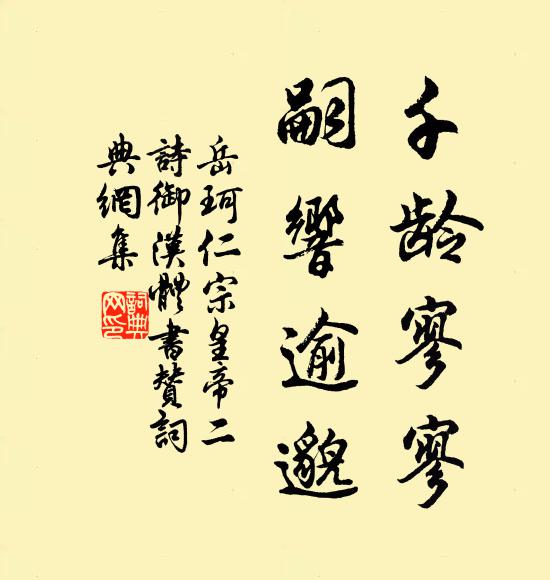 千齢寥寥
嗣響逾邈
岳珂仁宗皇帝二
詩御漢體書贊詞
典網集
詞典网印